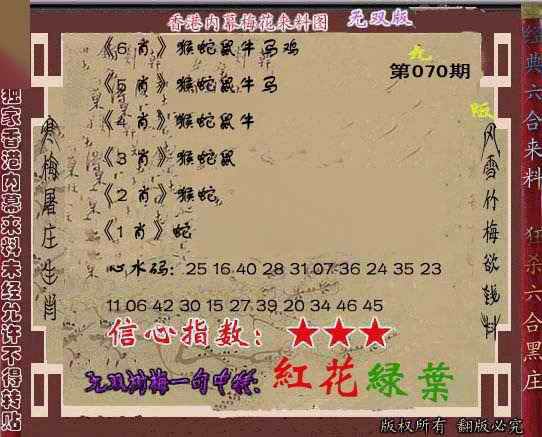 香港内幕梅花来料图 无双版
《6肖》猴蛇鼠牛马鸡
《5肖》猴蛇鼠牛马
《4肖》猴蛇鼠牛
《3肖》猴蛇鼠
《2肖》猴蛇
《1肖》蛇
第070期
心水码：25 16 40 28 31 07 36 24 35 23
11 06 42 30 15 27 39 20 34 46 45
信心指数：★★★
红花緑葉
独家香港内幕来料未经允许不得转贴
寒梅屠庄生肖
风雪竹梅欲钱料
经典六合来料
狂杀六合黑庄
版权所有 翻版必究